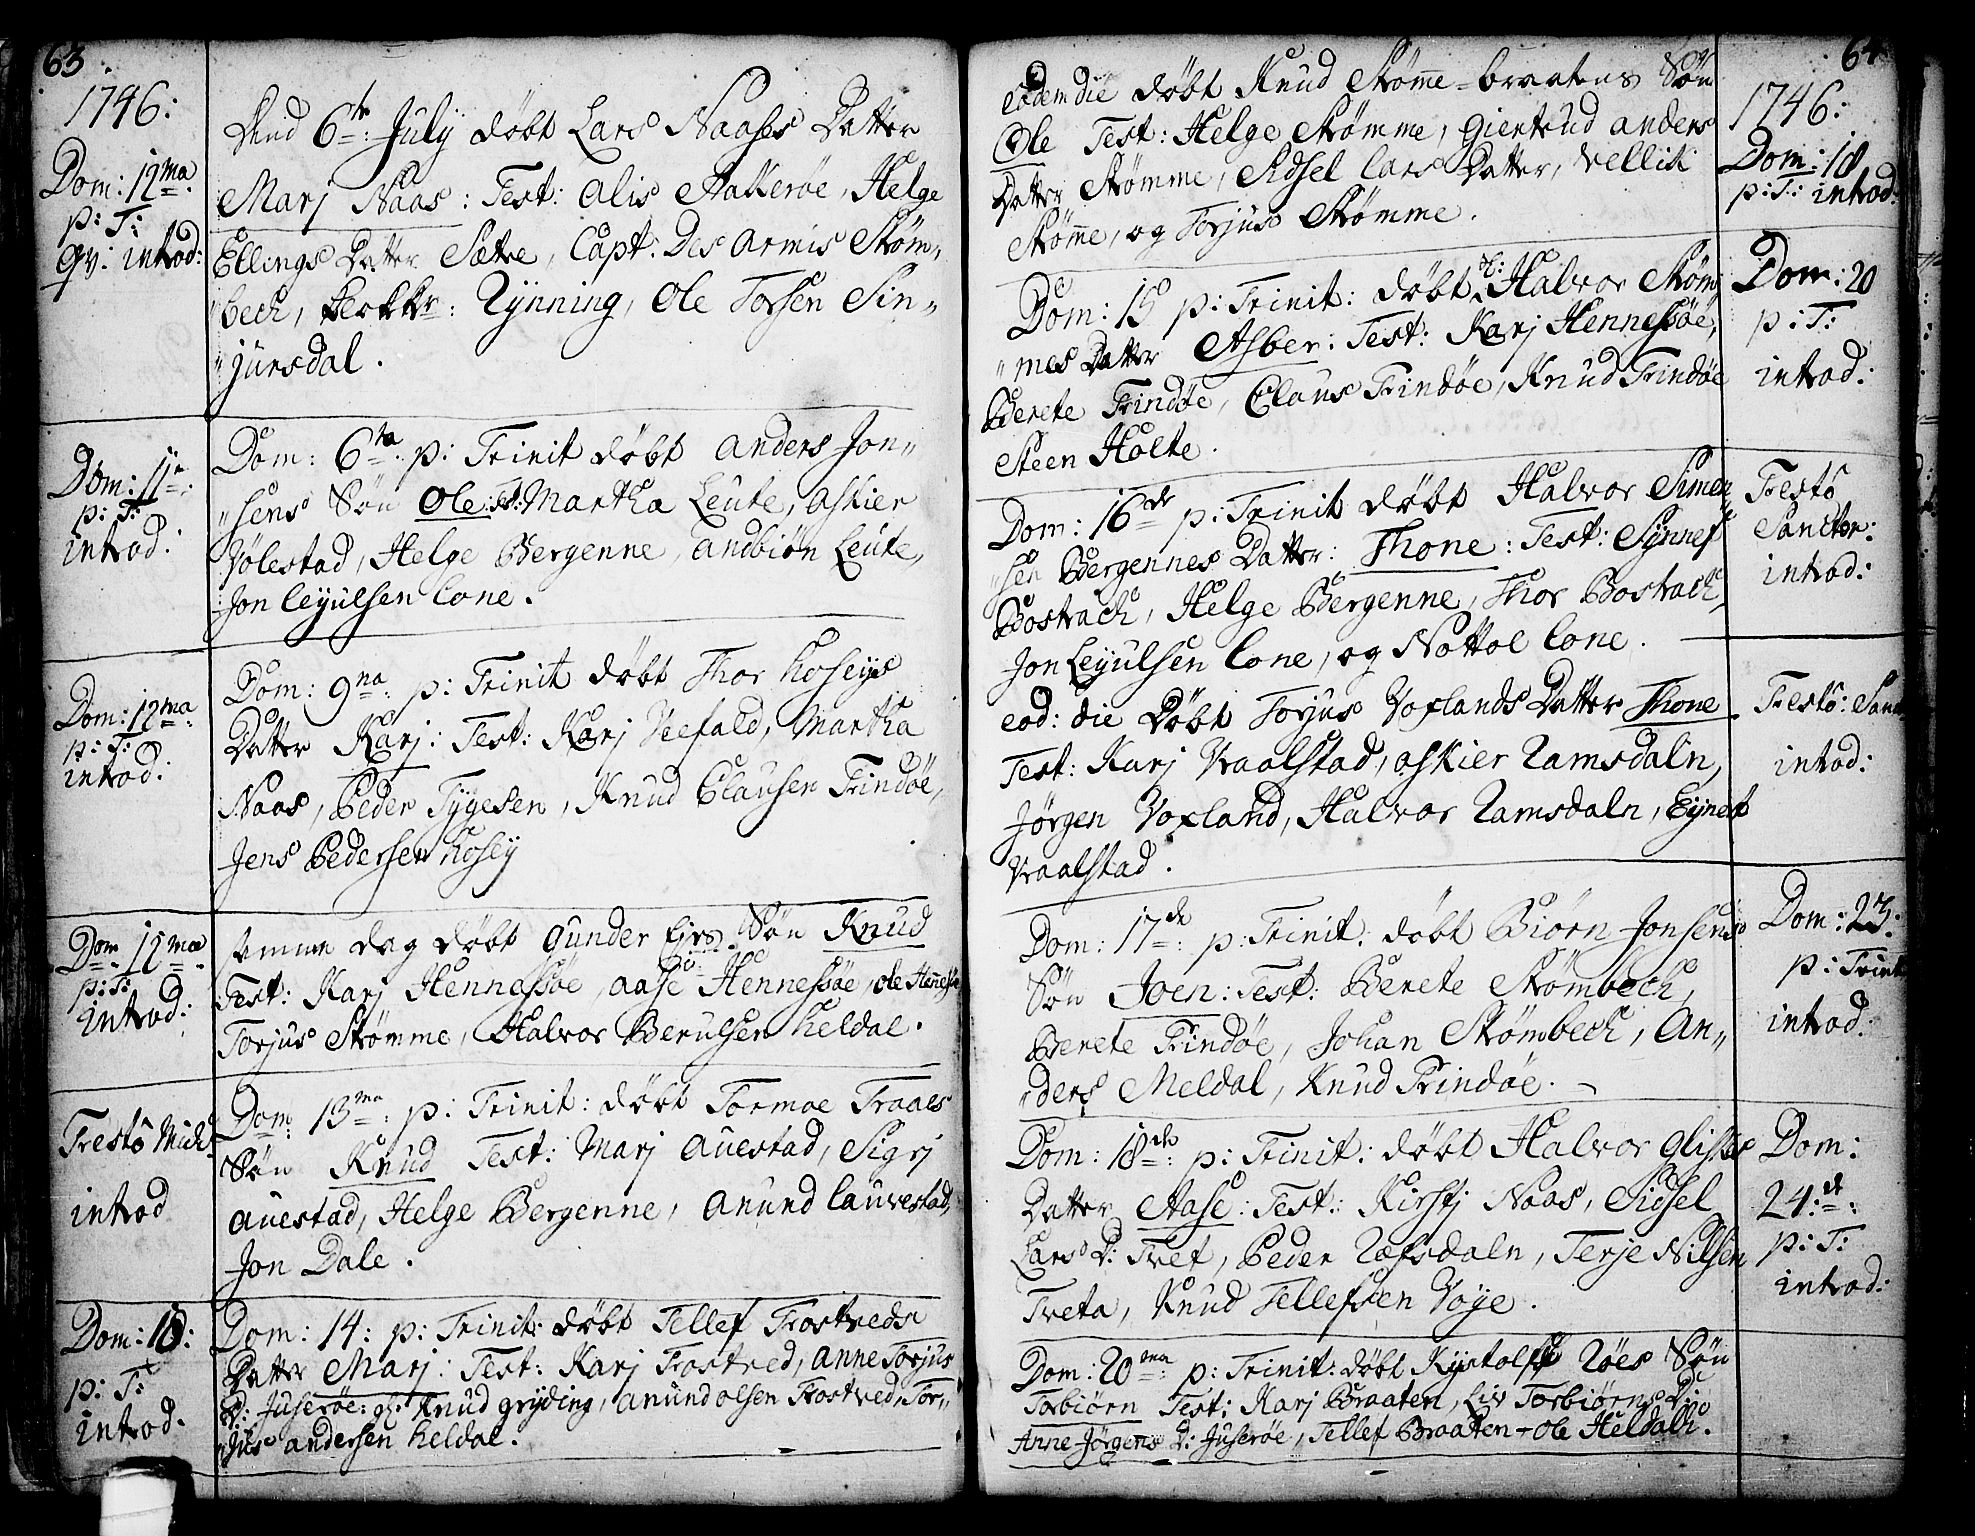 63
1746:
Dom: 12ma
p: T:
qv: introd:
Dend 6te July døbt Lars Naases Datter
Marj Naas: Test: Alis Aakerøe, Helge
Ellings Datter Sætre, Capt: Des Armis Strøm-
bech, Rynning, Ole Torsen Sin-
jursdal.
Dom: 11te:
p: T:
introd:
Dom: 6ta p: Trinit døbt Anders Jon-
sens Søn Ole: Test: Martha Leute, Askier
Vølestad, Helge Bergenne, Andbiøn Leute,
Jon Leyulsen Lone.
Dom: 12ma:
p: T:
introd:
Dom: 9na: p: Trinit døbt Thor Hoseys
Datter Karj: Test: Karj Veefald, Martha
Naas, Peder Tygesen, Knud Clausen Trindøe,
Jens Pedersen Hosey
Dom. 12ma
p: T:
introd:
samme dag døbt Gunder Søn Knud
Test: Karj Hennessøe, Aase Hennessøe, Ole Hennessøe
Torjus Strømme, Halvor Berulsen Heldal.
Festo Mich:
introd
Dom: 13ma: p: Trinit: døbt Tormoe Traaes
Søn Knud Test: Marj Auestad, Sigrj
Auestad, Helge Bergenne, Anund Lauvestad,
Jon Dale.
Dom: 18:
p: T:
introd.
Dom: 14: p: Trinit: døbt Tellef Trostveds
Datter Marj: Test: Karj Trostved, Anne Torjus
D: Juserøe: Knud Gryding, Anund Olsen Trostved, Tor-
jus Andersen Heldal.
64
1746:
Dom: 18
p: T: introd:
Eodem die døbt Knud Strømme-braatens Søn
Ole Test: Helge Strømme, Giertrud Anders
Datter Strømme, Sidsel Lars Datter, Vellik
Strømme, og Torjus Strømme.
Dom: 20
p: T:
introd:
Dom: 15 p: Trinit: døbt Halvor Strøm
mes Datter Asber: Test: Karj Hennessøe,
Berete Trindøe, Claus Trindøe, Knud Trindøe
Steen Holte.
Festo
Sanctor:
introd:
Dom: 16de p: Trinit døbt Halvor Simen
sen Bergennes Datter: Thone: Test: Synnef
Bostrach, Helge Bergenne, Thor Bostrach,
Jon Leyulsen Lone, og Nottol Lone.
Festo: Sanct
introd:
eod: die Døbt Torjus Voxlands Datter Thone
Test: Karj Vraalstad, Askier Ramsdaln,
Jørgen Voxland, Halvor Ramsdaln, Eynert
Vraalstad.
Dom: 23:
p: Trinit
introd:
Dom: 17de: p: Trinit: døbt Biørn Jonsens
Søn Joen: Test: Berete Strømbech,
Berete Trindøe, Johan Strømbech, An-
ders Meldal, Knud Trindøe.
Dom:
24:de:
p: T:
introd:
Dom: 18de: p: Trinit: døbt Halvor Glises
Datter Aase: Test: Kirstj Naas, Sidsel
Lars D: Tvet, Peder Refsdaln, Terje Nilsen
Tveta, Knud Tellefsen Voje.
Dom: 20ma: p: Trinit: døbt Kystolf Røes Søn
Torbiørn Test: Karj Braaten, Liv Torbiørns D:
Anne Jørgens D: Juserøe, Tellef Braaten - Ole Heldaln.